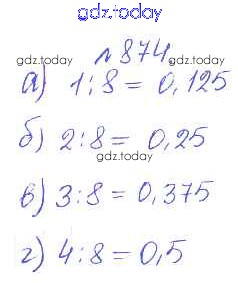 gdz.today
№874
gdz.today gdz.today
а) 1:8 = 0,125
б) 2:8 = 0,25
gdz.today
в) 3:8 = 0,375
г) 4:8 = 0,5
gdz.today gdz.today